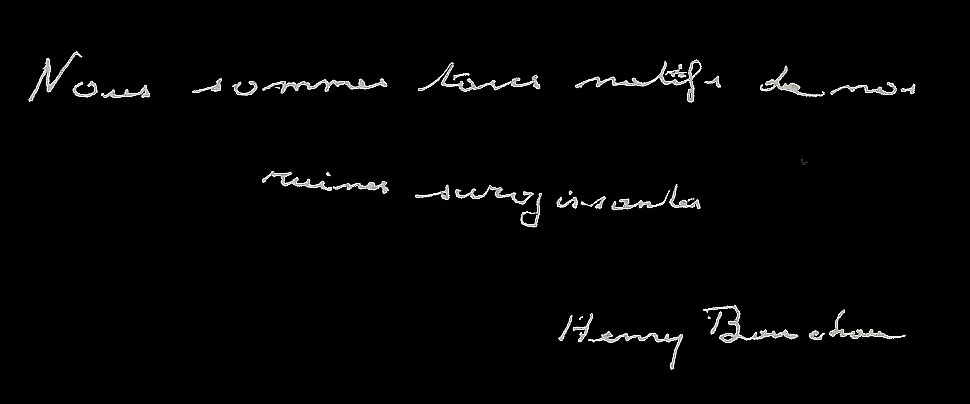 Nous sommes tous natifs de nos
ruines surgissantes
Henry Bauchau